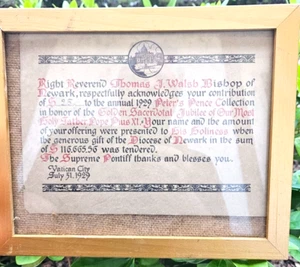 Right Reverend Thomas J. Walsh Bishop of
Newark, respectfully acknowledges your contribution
of $ 25 to the annual 1929 Peter's Pence Collection
in honor of the Golden Sacerdotal Jubilee of Our Most
Holy Father Pope Pius XI. Your name and the amount
of your offering were presented to His Holiness when
the generous gift of the Diocese of Newark in the sum
of $ 118,665.56 was tendered.
The Supreme Pontiff thanks and blesses you.
Vatican City
July 31, 1929